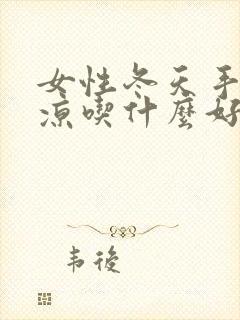 女性冬天手
涼喫什麼好
韦後